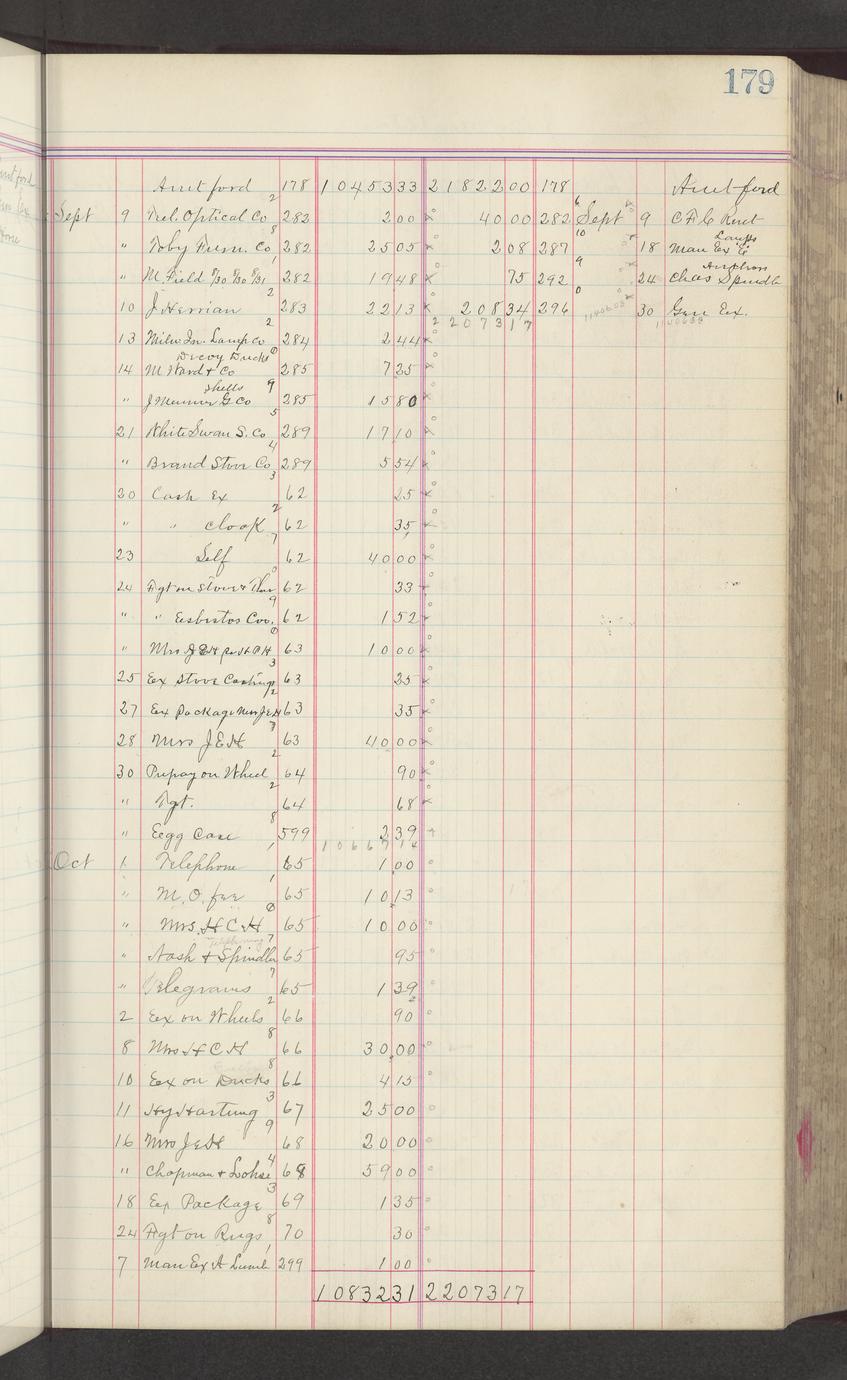 179
Amt ford 178 10453 33 21822 00 178 Amt ford
Sept 9 Optical Co 282 2 00 40 00 282 Sept 9 C F C Rent
" Toby Furn. Co 282 25 05 2 08 287 18 Man Ex Lamps
" M. Field 7/30 8/30 8/31 282 19 48 75 292 24 Chas Spindl
10 J. Herrian 283 22 13 208 34 296 30 Gen Ex.
22073 17
13 Milw. In. Lamp Co 284 2 44
Decoy Ducks
14 M. Ward & Co 285 7 25
Shells
" J G Co 285 15 80
21 White Swan S. Co 289 17 10
" Brand Stove Co 289 5 54
20 Cash Ex 62 25
" " clook 62 35
23 Self 62 40 00
24 Fgt on Stove & 62 33
" " Esbestos Cov. 62 1 52
" Mrs J E H 63 10 00
25 Ex Stove Castings 63 25
27 Ex Package Mrs J E H 63 35
28 Mrs J E H 63 40 00
30 Prepay on Wheel 64 90
" Fgt. 64 68
" Eegg Case 599 2 39
10667 14
Oct 1 Telephone 65 1 00
" M. O. fee 65 10 13
" Mrs. H C H 65 10 00
Telephoning
" Nash & Spindler 65 95
" Telegrams 65 1 39
2 Ex on Wheels 66 90
8 Mrs H C H 66 30 00
10 Ex on Ducks 66 4 15
11 Hy Hartung 67 25 00
16 Mrs J E H 68 20 00
" Chapman & Lohse 68 59 00
18 Ex Package 69 1 35
24 Fgt on Rugs 70 30
7 Man Ex A Lumb 299 1 00
10832 31 22073 17